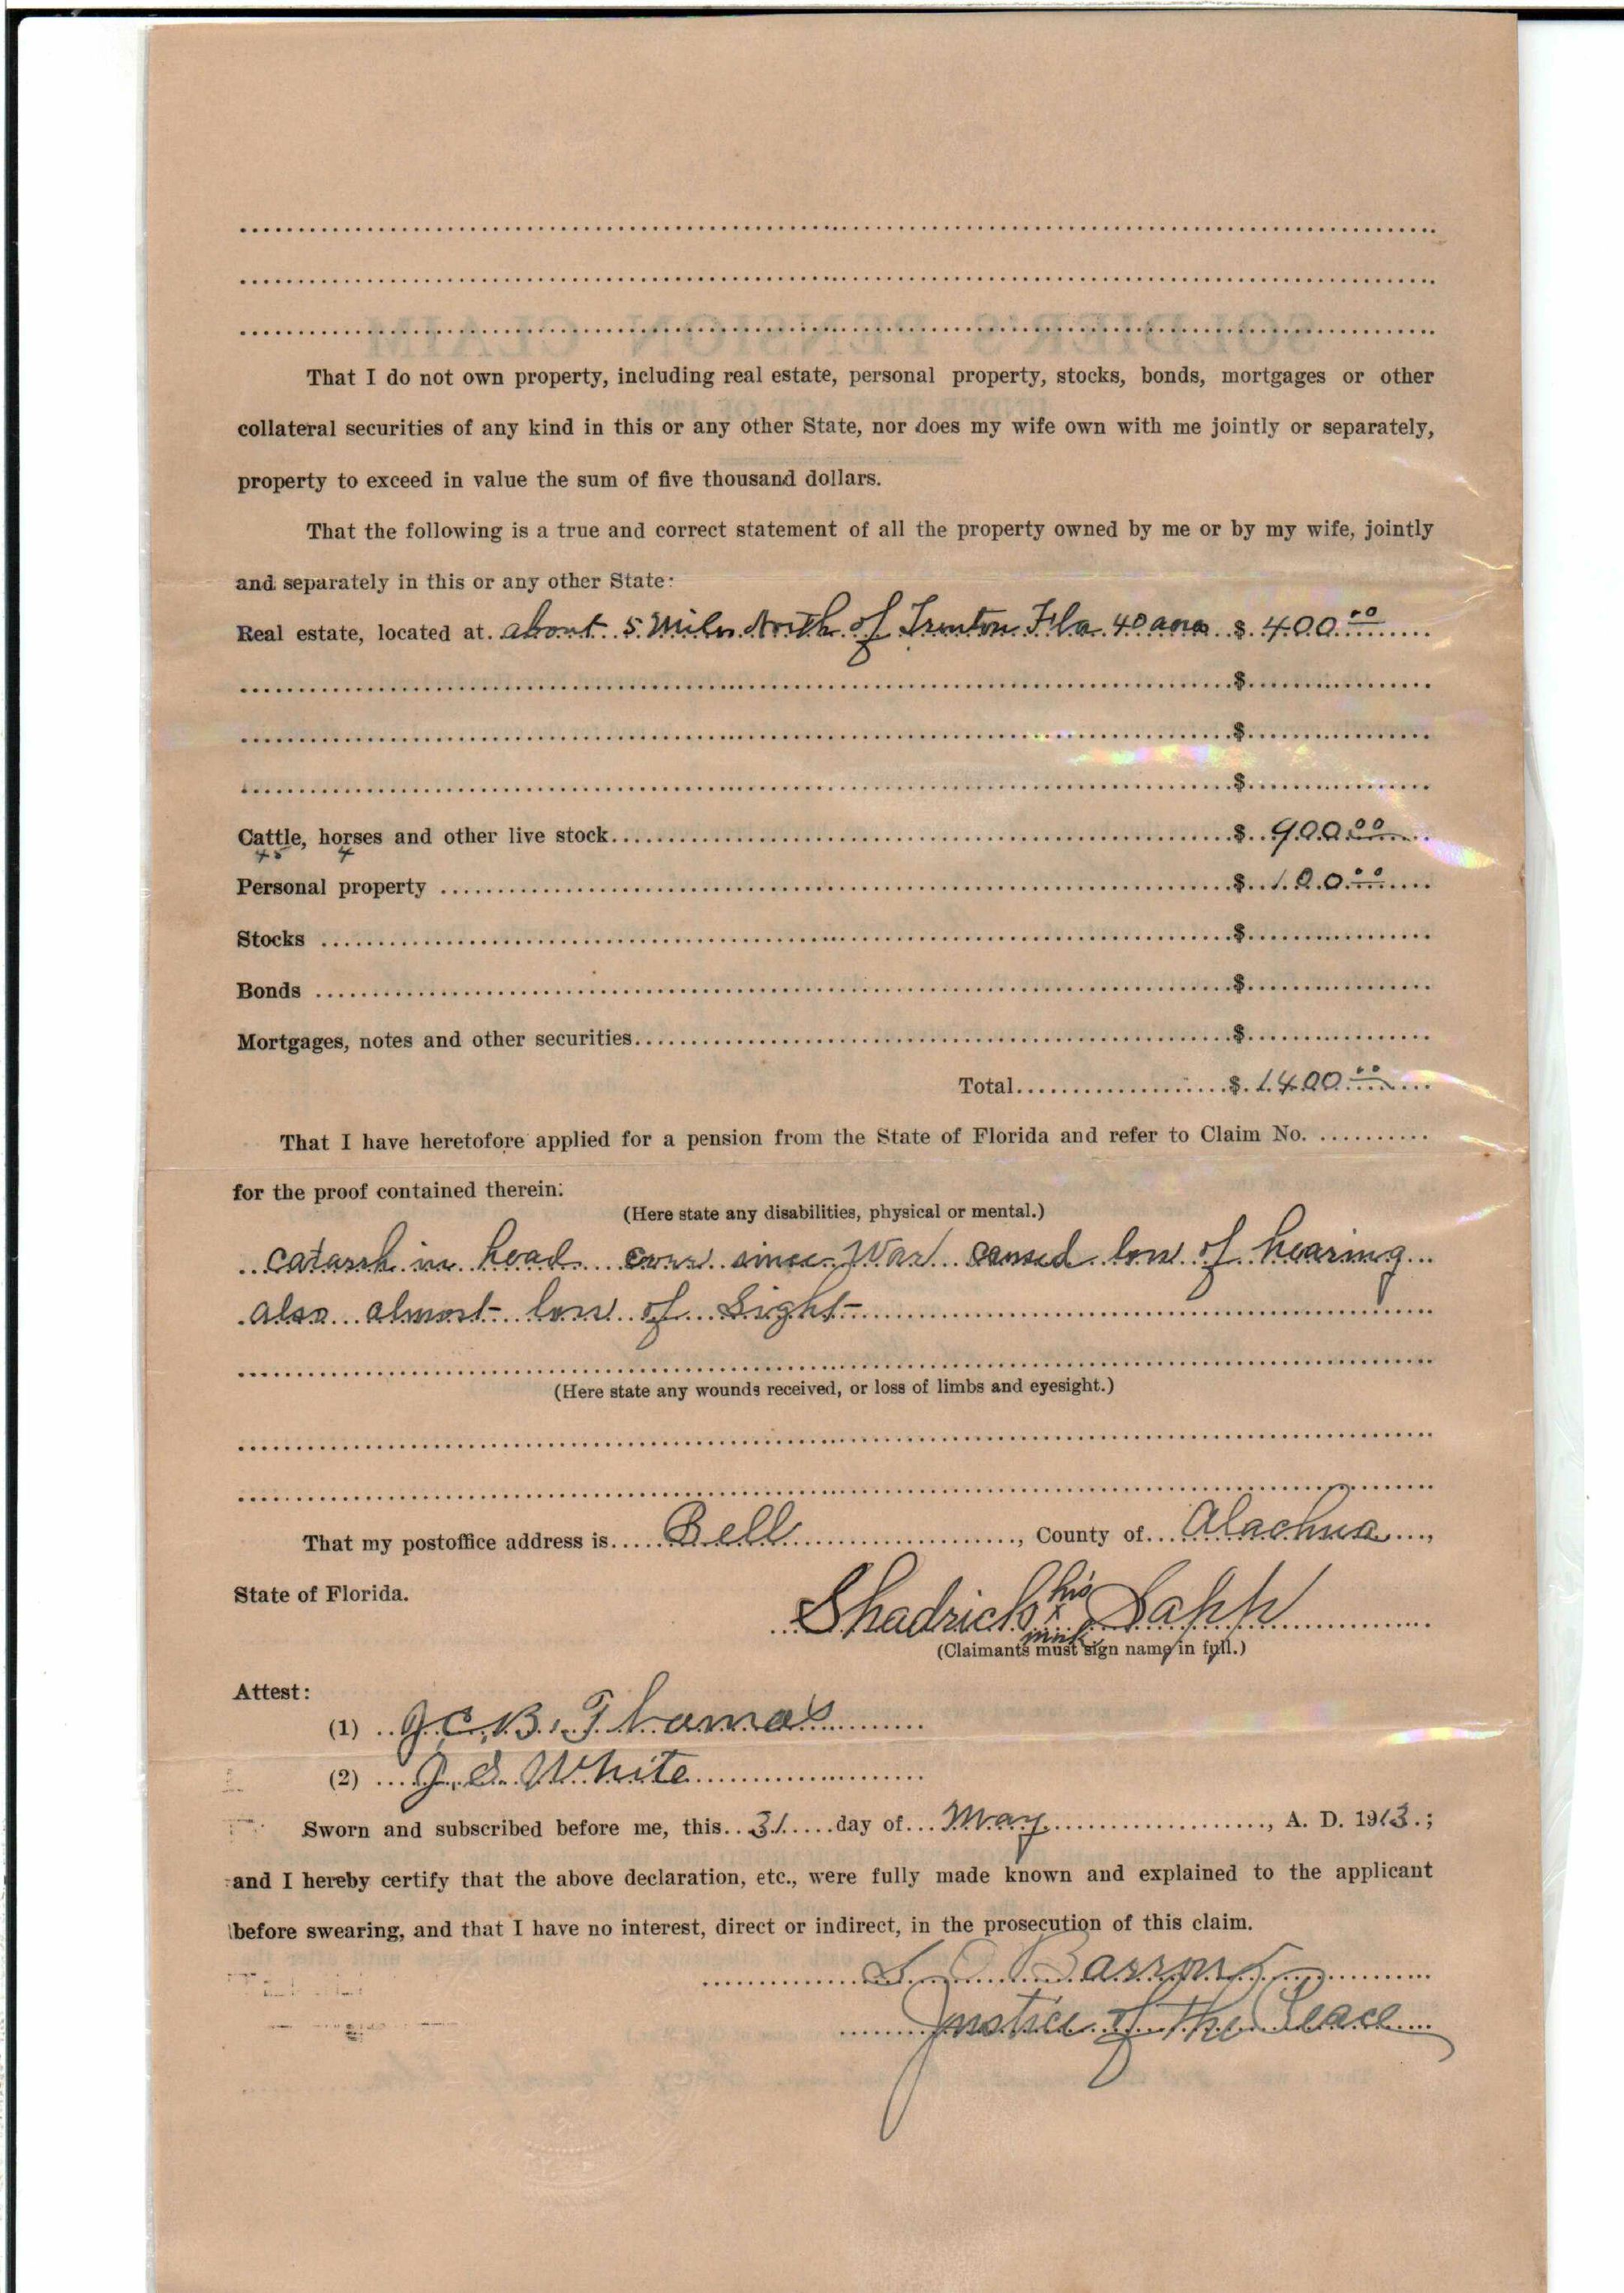 SOLDIER'S PENSION CLAIM
UNDER THE ACT OF
That I do not own property, including real estate, personal property, stocks, bonds, mortgages or other
collateral securities of any kind in this or any other State, nor does my wife own with me jointly or separately,
property to exceed in value the sum of five thousand dollars.
That the following is a true and correct statement of all the property owned by me or by my wife, jointly
and separately in this or any other State:
Real estate, located at about 5 Miles North of Trenton Fla 40 acres $ 400.00
$
$
$
Cattle, horses and other live stock $ 900.00
45 4
Personal property $ 100.00
Stocks $
Bonds $
Mortgages, notes and other securities $
Total $ 1400.00
That I have heretofore applied for a pension from the State of Florida and refer to Claim No.
for the proof contained therein:
(Here state any disabilities, physical or mental.)
catarrh in head ever since War caused loss of hearing
also almost loss of Sight
(Here state any wounds received, or loss of limbs and eyesight.)
That my postoffice address is Bell, County of Alachua,
State of Florida.
Shadrick his x mark Sapp
(Claimants must sign name in full.)
Attest:
(1) J.C.B. Thomas
(2) J. S. White
Sworn and subscribed before me, this 31 day of May, A. D. 1913.;
and I hereby certify that the above declaration, etc., were fully made known and explained to the applicant
before swearing, and that I have no interest, direct or indirect, in the prosecution of this claim.
Barron
Justice of the Peace